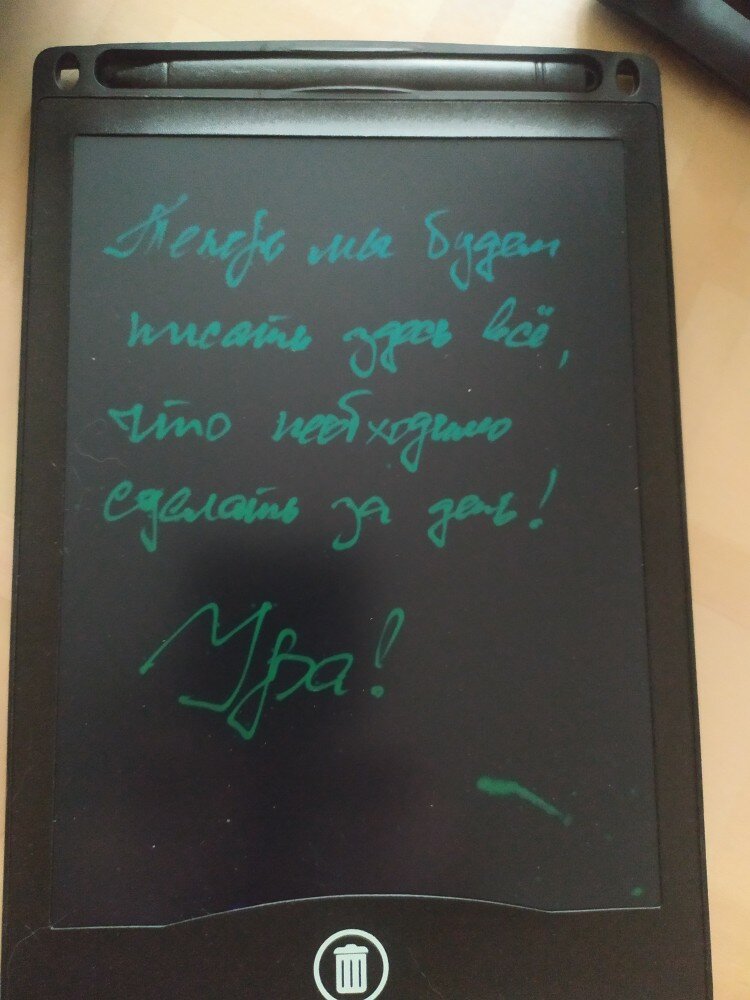 Теперь мы будем
писать здесь всё,
что необходимо
сделать за день!
Ура!